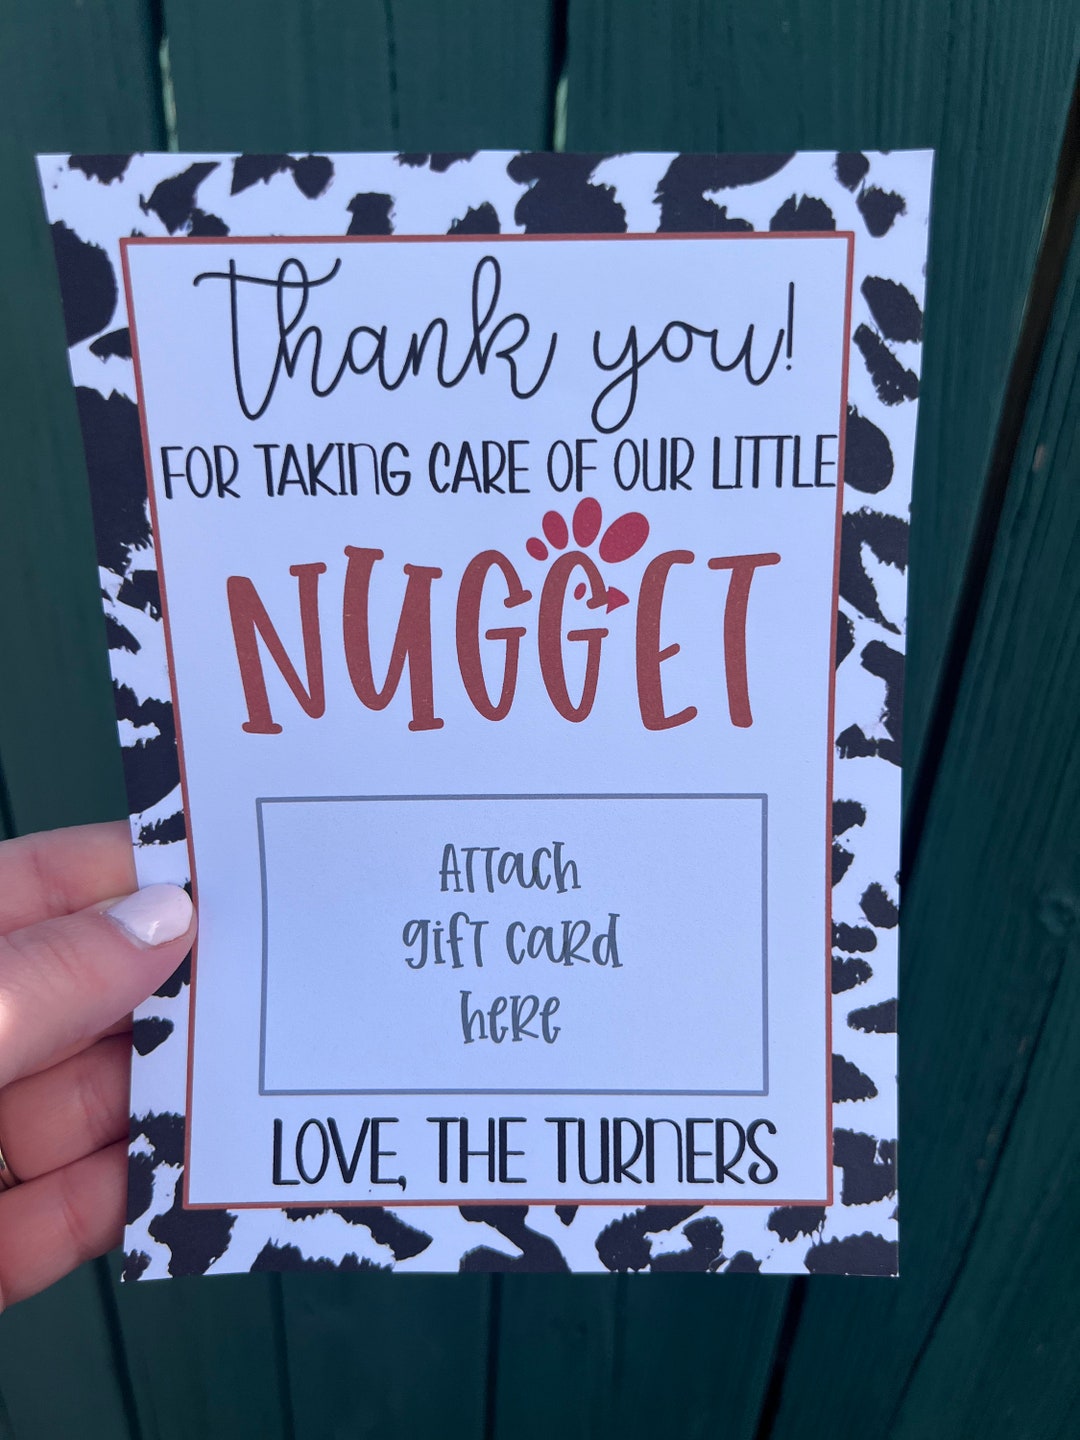 Thank you!
FOR TAKING CARE OF OUR LITTLE
NUGGET
ATTach
gifT caRd
heRe
LOVE, THE TURNERS